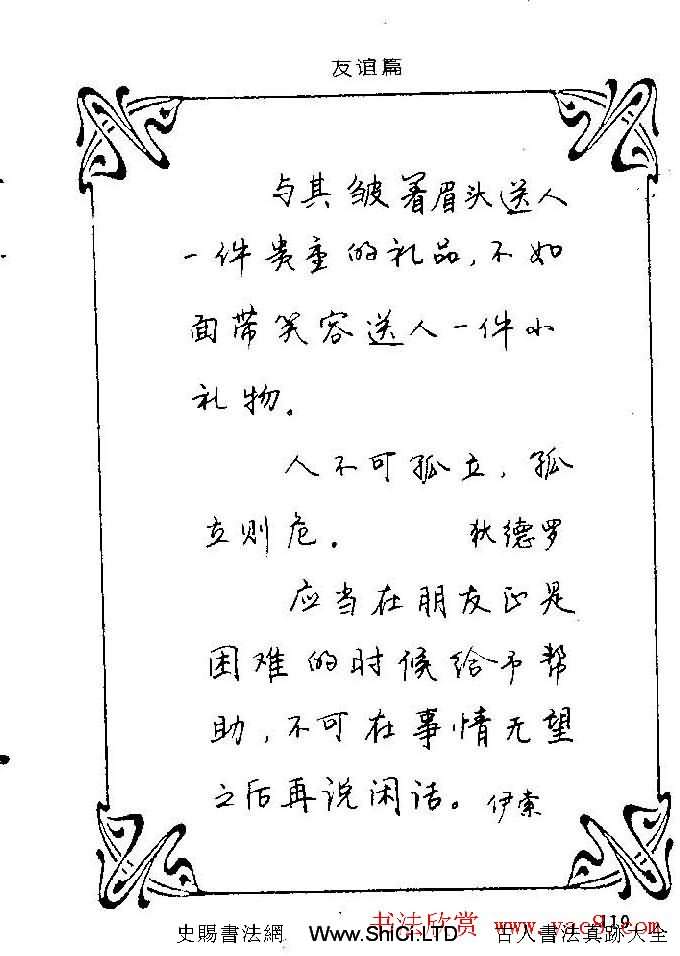 友谊篇
与其皱着眉头送人
一件贵重的礼品,不如
面带笑容送人一件小
礼物。
人不可孤立,孤
立则危。 狄德罗
应当在朋友正是
困难的时候给予帮
助,不可在事情无望
之后再说闲话。 伊索
119
书法欣赏 www.yac8.com
史賜書法網 www.ShiCi.LTD 古人書法真跡大全